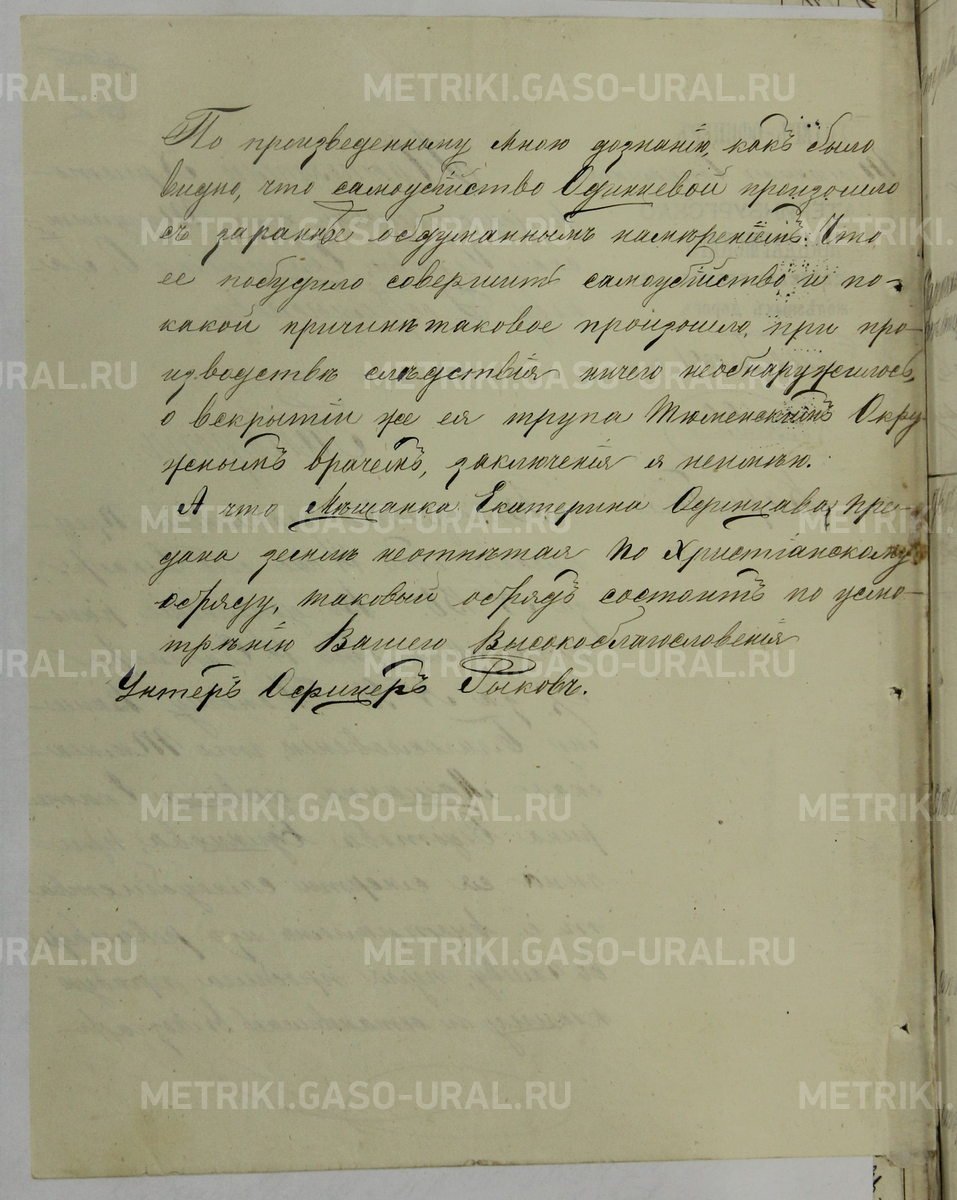 По произведенному мною дознанію, какъ было
видно, что самоубійство Одинцевой произошло
съ заранѣе обдуманнымъ намѣреніемъ. Что
ее побудило совершить самоубійство и по-
какой причинѣ таковое произошло, при про-
изводствѣ слѣдствія ничего необнаружилось,
о вскрытіи же ея трупа Тюменскимъ Окру
жнымъ врачемъ, заключенія я неимѣю.
А что Мѣщанка Екатерина Одинцава, пре-
дана землѣ неотпѣтая по Христіанскому
обряду, таковый обрядъ состоитъ по усмо-
трѣнію Вашего Высокоблагословенія
Унтеръ Офицеръ Рыковъ.
METRIKI.GASO-URAL.RU